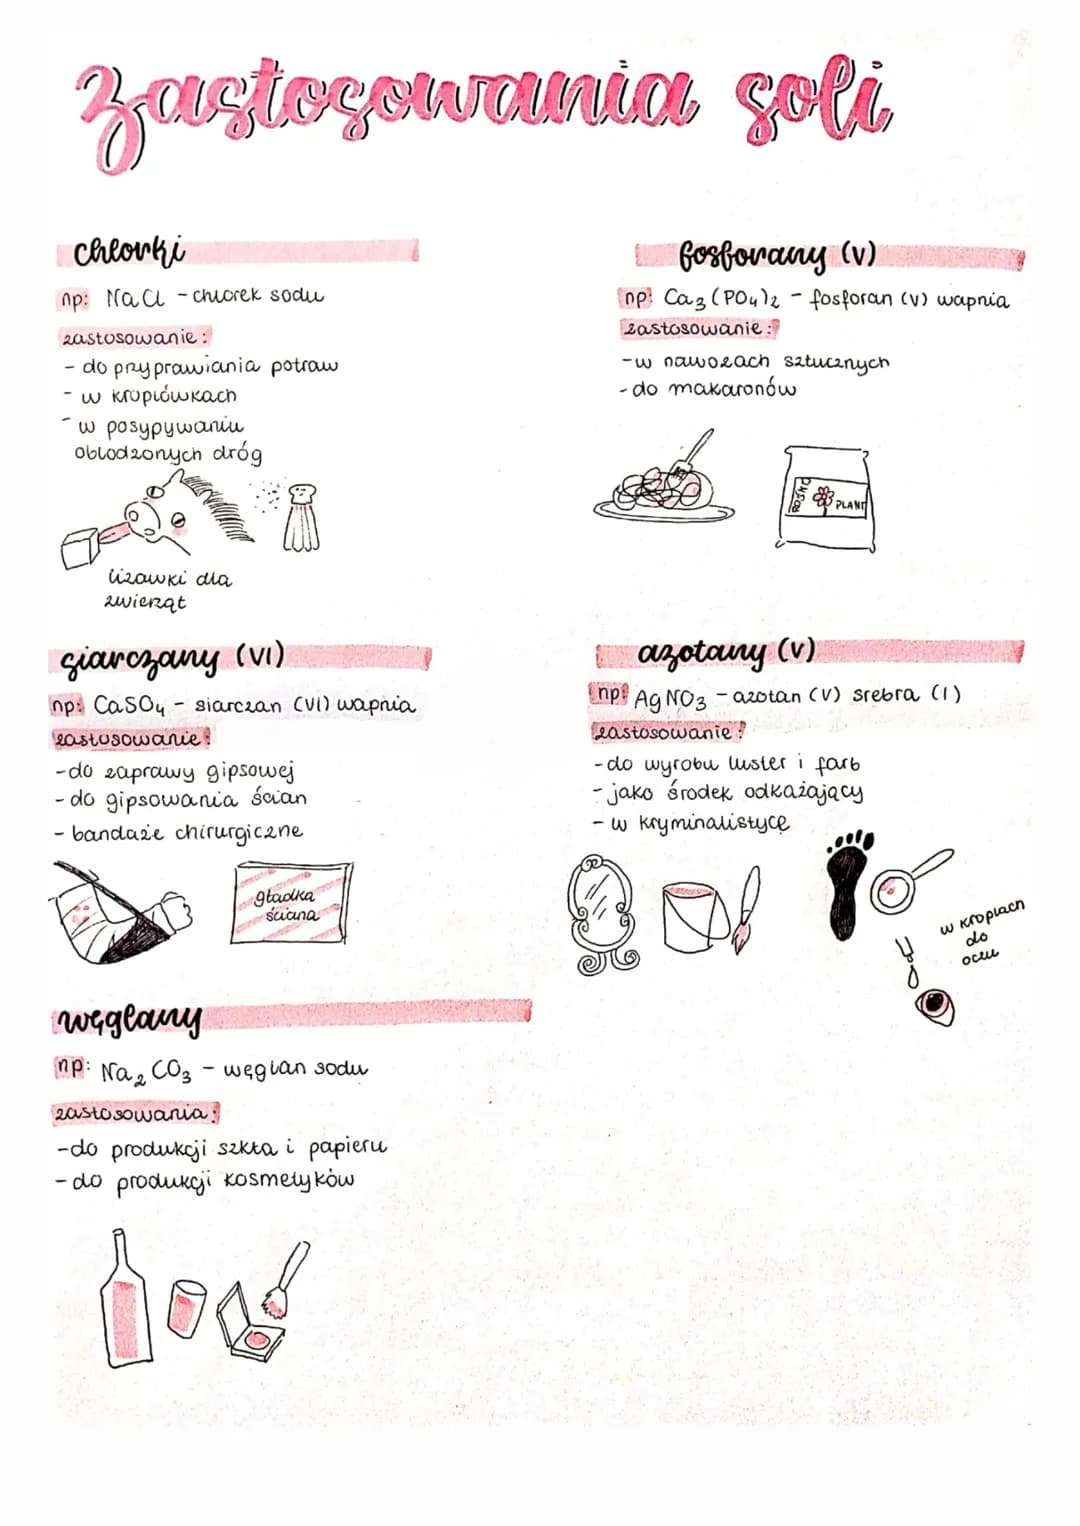 zastosowania soli
chlorki
np: NaCl - chlorek sodu
zastosowanie:
- do przyprawiania potraw
- w kroplówkach
- w posypywaniu
oblodzonych dróg
lizawki dla
zwierząt
fosforany (V)
np: Ca₃(PO₄)₂ - fosforan (V) wapnia
zastosowanie:
- w nawozach sztucznych
- do makaronów
PLANT
siarczany (VI)
np: CaSO₄ - siarczan (VI) wapnia
zastosowanie:
- do zaprawy gipsowej
- do gipsowania ścian
- bandaże chirurgiczne
gładka
ściana
azotany (V)
np: AgNO₃ - azotan (V) srebra (I)
zastosowanie:
- do wyrobu luster i farb
- jako środek odkażający
- w kryminalistycę
w kroplach
do
oczu
węglany
np: Na₂CO₃ - węglan sodu
zastosowania:
- do produkcji szkła i papieru
- do produkcji kosmetyków